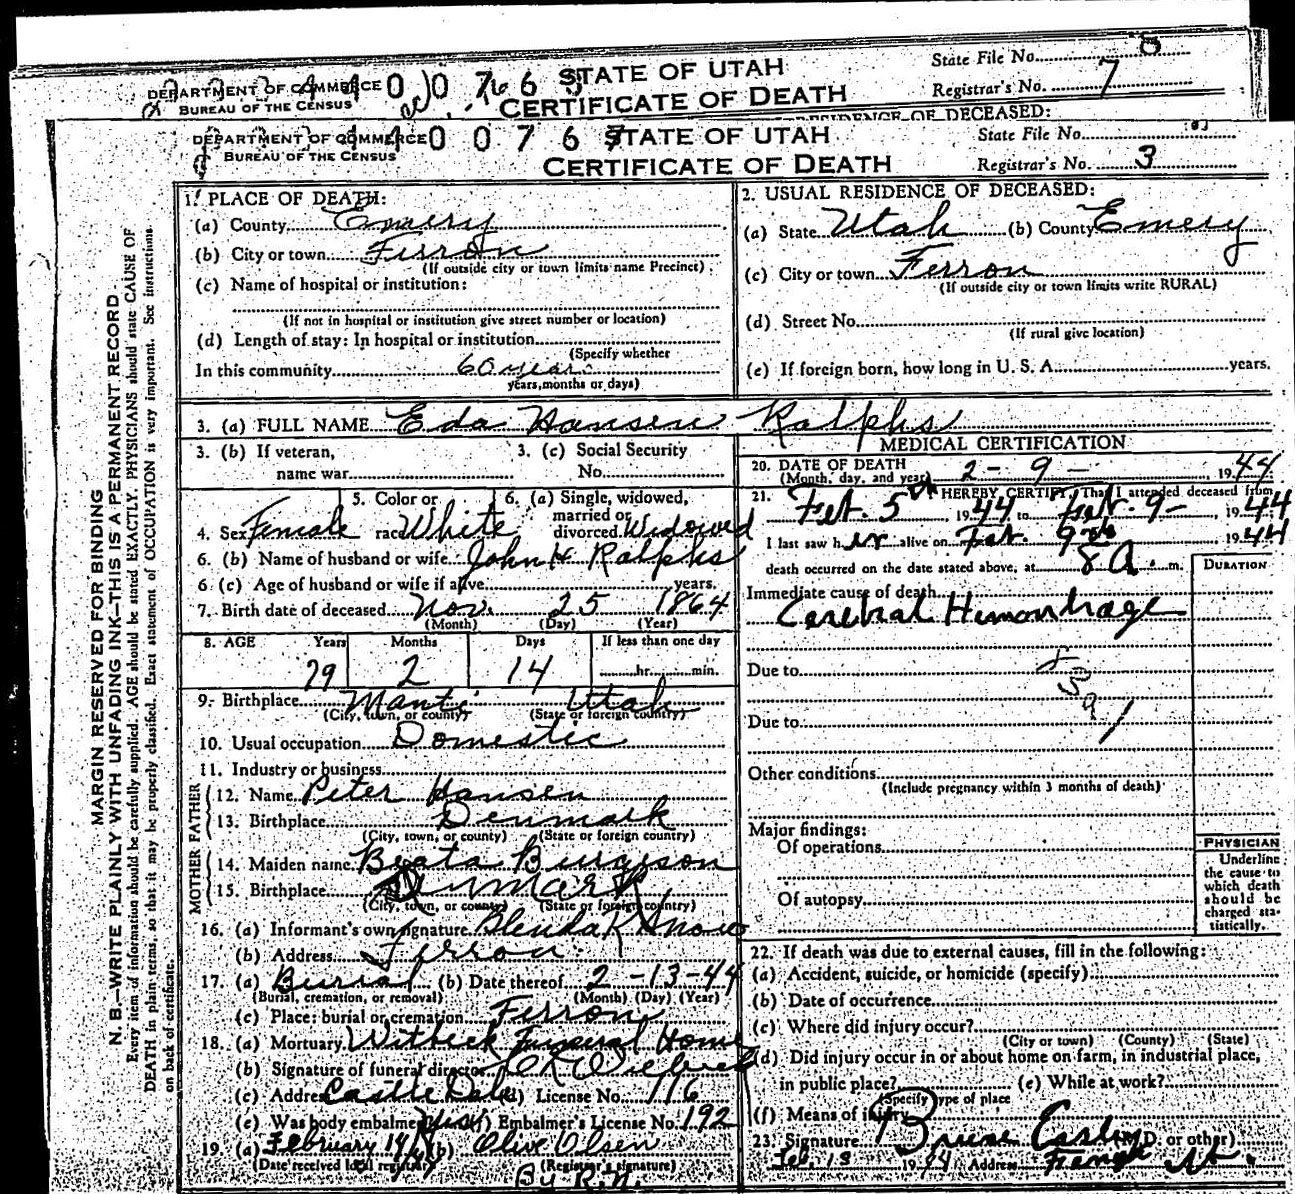 DEPARTMENT OF COMMERCE
BUREAU OF THE CENSUS
STATE OF UTAH
CERTIFICATE OF DEATH
State File No. 8
Registrar's No. 7
RESIDENCE OF DECEASED:
DEPARTMENT OF COMMERCE
BUREAU OF THE CENSUS
STATE OF UTAH
CERTIFICATE OF DEATH
State File No.
Registrar's No. 3
MARGIN RESERVED FOR BINDING
N. B.—WRITE PLAINLY WITH UNFADING INK—THIS IS A PERMANENT RECORD.
Every item of information should be carefully supplied. AGE should be stated EXACTLY. PHYSICIANS should state CAUSE OF
DEATH in plain terms, so that it may be properly classified. Exact statement of OCCUPATION is very important. See instructions
on back of certificate.
1. PLACE OF DEATH:
(a) County Emery
(b) City or town Ferron
(If outside city or town limits name Precinct)
(c) Name of hospital or institution:
(If not in hospital or institution give street number or location)
(d) Length of stay: In hospital or institution
(Specify whether
In this community 60 years
years, months or days)
2. USUAL RESIDENCE OF DECEASED:
(a) State Utah (b) County Emery
(c) City or town Ferron
(If outside city or town limits write RURAL)
(d) Street No.
(If rural give location)
(e) If foreign born, how long in U. S. A. years.
3. (a) FULL NAME Eda Hansen Ralphs
3. (b) If veteran,
name war
3. (c) Social Security
No.
4. Sex Female
5. Color or
race White
6. (a) Single, widowed,
married or
divorced Widowed
6. (b) Name of husband or wife John H Ralphs
6 (c) Age of husband or wife if alive years.
7. Birth date of deceased Nov. 25 1864
(Month) (Day) (Year)
8. AGE Years Months Days If less than one day
79 2 14 hr. min.
9. Birthplace Manti Utah
(City, town, or county) (State or foreign country)
10. Usual occupation Domestic
11. Industry or business
FATHER
12. Name Peter Hansen
13. Birthplace Denmark
(City, town, or county) (State or foreign country)
MOTHER
14. Maiden name Beata
15. Birthplace Denmark
(City, town, or county) (State or foreign country)
16. (a) Informant's own signature Glenda R Snow
(b) Address Ferron
17. (a) Burial (b) Date thereof 2-13-44
(Burial, cremation, or removal) (Month) (Day) (Year)
(c) Place: burial or cremation Ferron
18. (a) Mortuary Witbeck Funeral Home
(b) Signature of funeral director
(c) Address Castle Dale (d) License No. 116
(e) Was body embalmed yes (f) Embalmer's License No. 192
19. (a) February 14/44 (b) Olive Olsen
(Date received local registrar) (Registrar's signature)
By R.N.
MEDICAL CERTIFICATION
20. DATE OF DEATH
(Month, day, and year) 2-9- 1944
21. I HEREBY CERTIFY That I attended deceased from
Feb. 5th 1944 to Feb. 9- 1944
I last saw her alive on Feb. 9th 1944
death occurred on the date stated above, at 8 A. m.
DURATION
Immediate cause of death
Cerebral Hemorrhage
Due to
Due to
Other conditions
(Include pregnancy within 3 months of death)
Major findings:
Of operations
Of autopsy
PHYSICIAN
Underline
the cause to
which death
should be
charged sta-
tistically.
22. If death was due to external causes, fill in the following:
(a) Accident, suicide, or homicide (specify)
(b) Date of occurrence
(c) Where did injury occur?
(City or town) (County) (State)
(d) Did injury occur in or about home on farm, in industrial place,
in public place? (e) While at work?
(Specify type of place
(f) Means of injury
23. Signature Bruce (M.D. or other)
Feb. 13 1944 Address Ferron Ut.